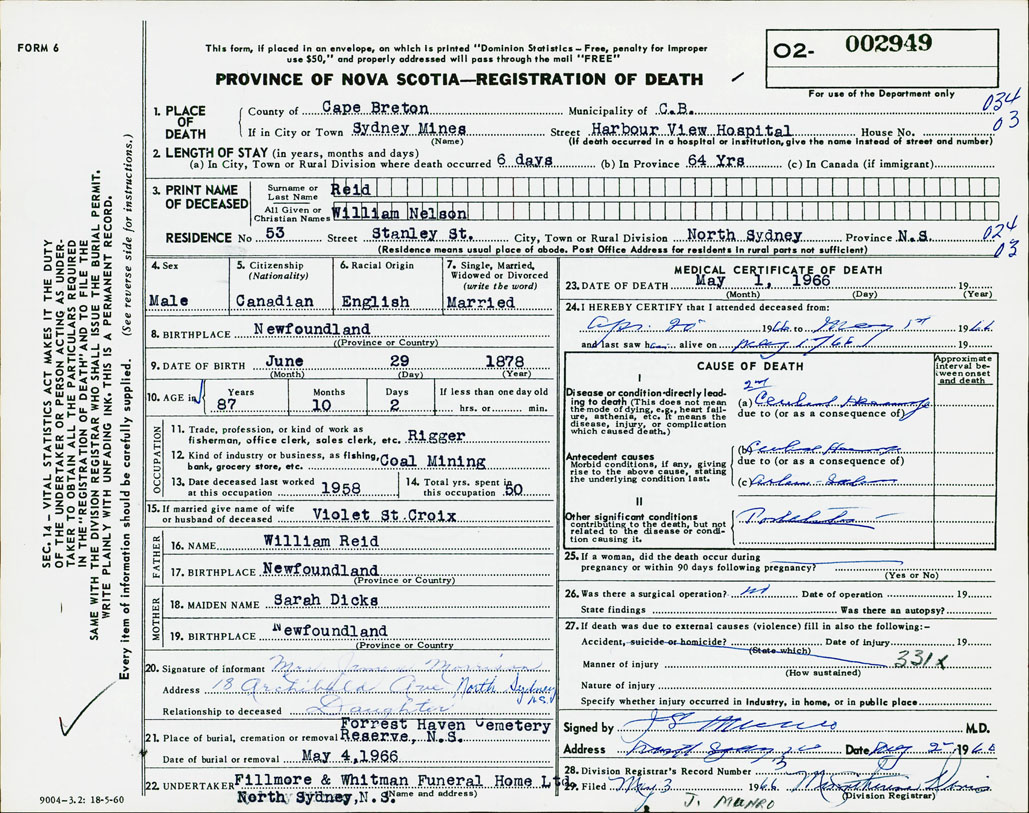 FORM 6
This form, if placed in an envelope, on which is printed "Dominion Statistics – Free, penalty for improper
use $50," and properly addressed will pass through the mail "FREE"
PROVINCE OF NOVA SCOTIA—REGISTRATION OF DEATH
02- 002949
For use of the Department only
034
03
1. PLACE OF DEATH
County of Cape Breton Municipality of C.B.
If in City or Town Sydney Mines Street Harbour View Hospital House No.
(Name) (If death occurred in a hospital or institution, give the name instead of street and number)
2. LENGTH OF STAY (in years, months and days)
(a) In City, Town or Rural Division where death occurred 6 days (b) In Province 64 Yrs (c) In Canada (if immigrant)
3. PRINT NAME OF DECEASED
Surname or Last Name Reid
All Given or Christian Names William Nelson
RESIDENCE No 53 Street Stanley St. City, Town or Rural Division North Sydney Province N.S.
024
03
(Residence means usual place of abode. Post Office Address for residents in rural parts not sufficient)
4. Sex
Male
5. Citizenship
(Nationality)
Canadian
6. Racial Origin
English
7. Single, Married,
Widowed or Divorced
(write the word)
Married
8. BIRTHPLACE Newfoundland
(Province or Country)
9. DATE OF BIRTH June 29 1878
(Month) (Day) (Year)
10. AGE in Years Months Days If less than one day old
87 10 2 hrs. or min.
OCCUPATION
11. Trade, profession, or kind of work as
fisherman, office clerk, sales clerk, etc. Rigger
12. Kind of industry or business, as fishing,
bank, grocery store, etc. Coal Mining
13. Date deceased last worked
at this occupation 1958
14. Total yrs. spent in
this occupation 50
15. If married give name of wife
or husband of deceased Violet St.Croix
FATHER
16. NAME William Reid
17. BIRTHPLACE Newfoundland
(Province or Country)
MOTHER
18. MAIDEN NAME Sarah Dicks
19. BIRTHPLACE Newfoundland
(Province or Country)
20. Signature of informant Mrs. James Morrison
Address 18 Archibald Ave North Sydney N.S.
Relationship to deceased Daughter
21. Place of burial, cremation or removal Forrest Haven Cemetery
Reserve, N.S.
Date of burial or removal May 4,1966
22. UNDERTAKER Fillmore & Whitman Funeral Home Ltd.
North Sydney,N.S. (Name and address)
MEDICAL CERTIFICATE OF DEATH
23. DATE OF DEATH May 1, 1966 19
(Month) (Day) (Year)
24. I HEREBY CERTIFY that I attended deceased from:
1966 to May 1st 1966
and last saw h alive on 19
CAUSE OF DEATH
Approximate
interval be-
tween onset
and death
I
Disease or condition directly lead-
ing to death (This does not mean
the mode of dying, e.g., heart fail-
ure, asthenia, etc. It means the
disease, injury, or complication
which caused death.)
2nd
(a) Cerebral
due to (or as a consequence of)
Antecedent causes
Morbid conditions, if any, giving
rise to the above cause, stating
the underlying condition last.
(b)
due to (or as a consequence of)
(c)
II
Other significant conditions
contributing to the death, but not
related to the disease or condi-
tion causing it.
25. If a woman, did the death occur during
pregnancy or within 90 days following pregnancy?
(Yes or No)
26. Was there a surgical operation? Date of operation 19
State findings Was there an autopsy?
27. If death was due to external causes (violence) fill in also the following:-
Accident, suicide or homicide? Date of injury 19
(State which)
Manner of injury 331x
(How sustained)
Nature of injury
Specify whether injury occurred in industry, in home, or in public place
Signed by M.D.
Address North Sydney Date May 2 1966
28. Division Registrar's Record Number 3
29. Filed May 3 1966
(Division Registrar)
J. MUNRO
SEC. 14 – VITAL STATISTICS ACT MAKES IT THE DUTY
OF THE UNDERTAKER OR PERSON ACTING AS UNDER-
TAKER TO OBTAIN ALL THE PARTICULARS REQUIRED
IN THE "REGISTRATION OF DEATH" AND TO FILE THE
SAME WITH THE DIVISION REGISTRAR WHO SHALL ISSUE THE BURIAL PERMIT.
WRITE PLAINLY WITH UNFADING INK. THIS IS A PERMANENT RECORD.
Every item of information should be carefully supplied. (See reverse side for instructions.)
9004–3.2: 18-5-60